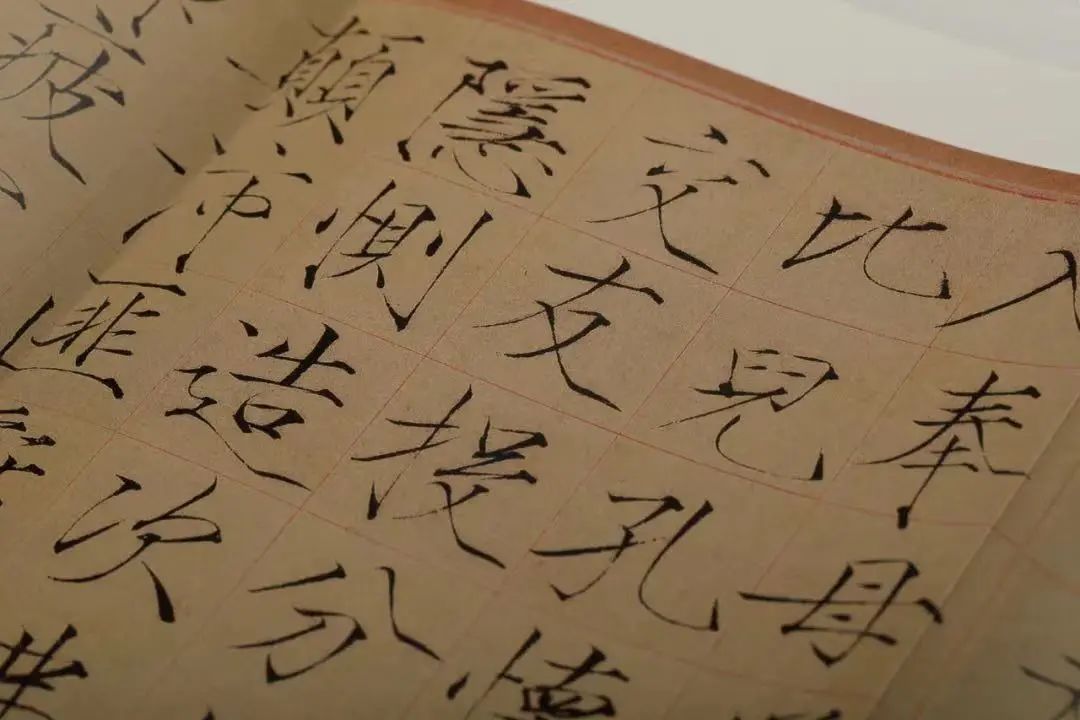 入奉母
比兒孔
交友投分
隱惻造次
顛沛匪
疲